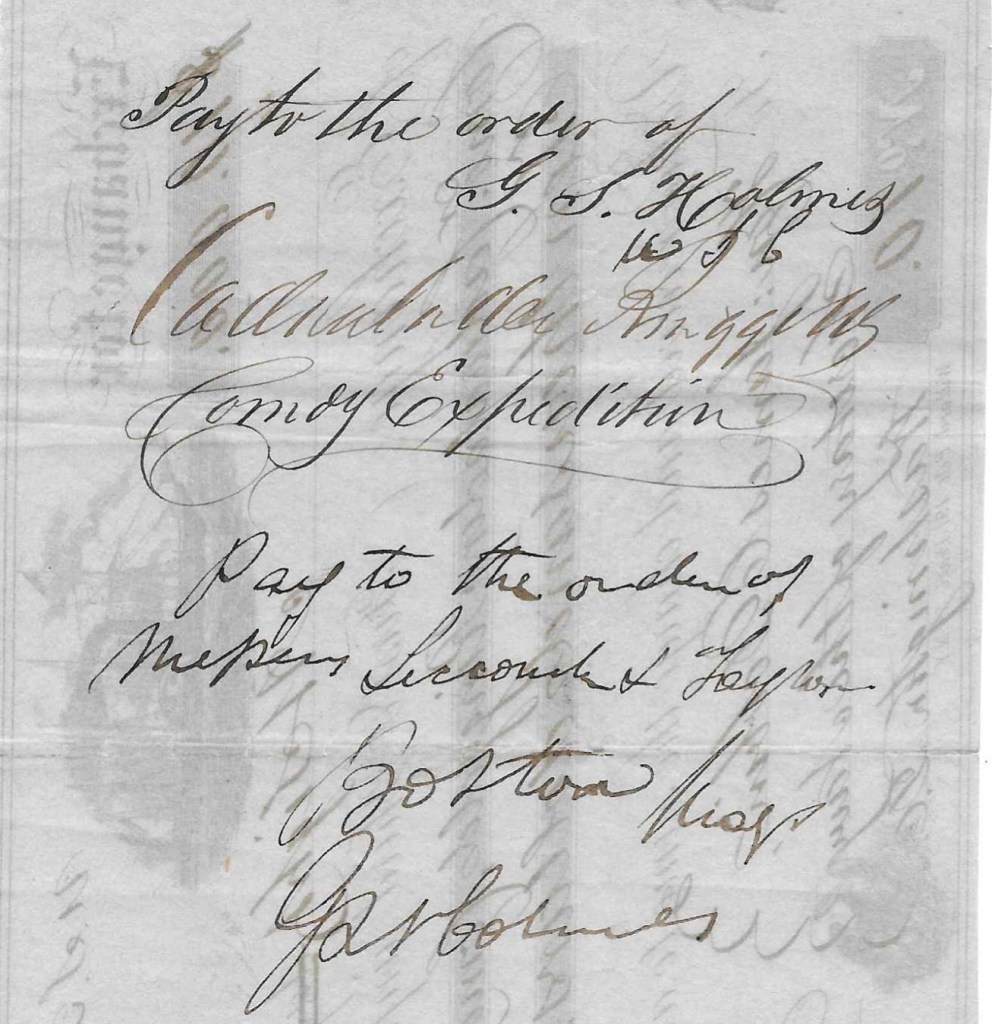 Pay to the order of
G. S. Holmes
Cadwalader Ringgold
Comdg Expedition
Pay to the order of
Messrs & Taylor
Boston Mass
G S Holmes